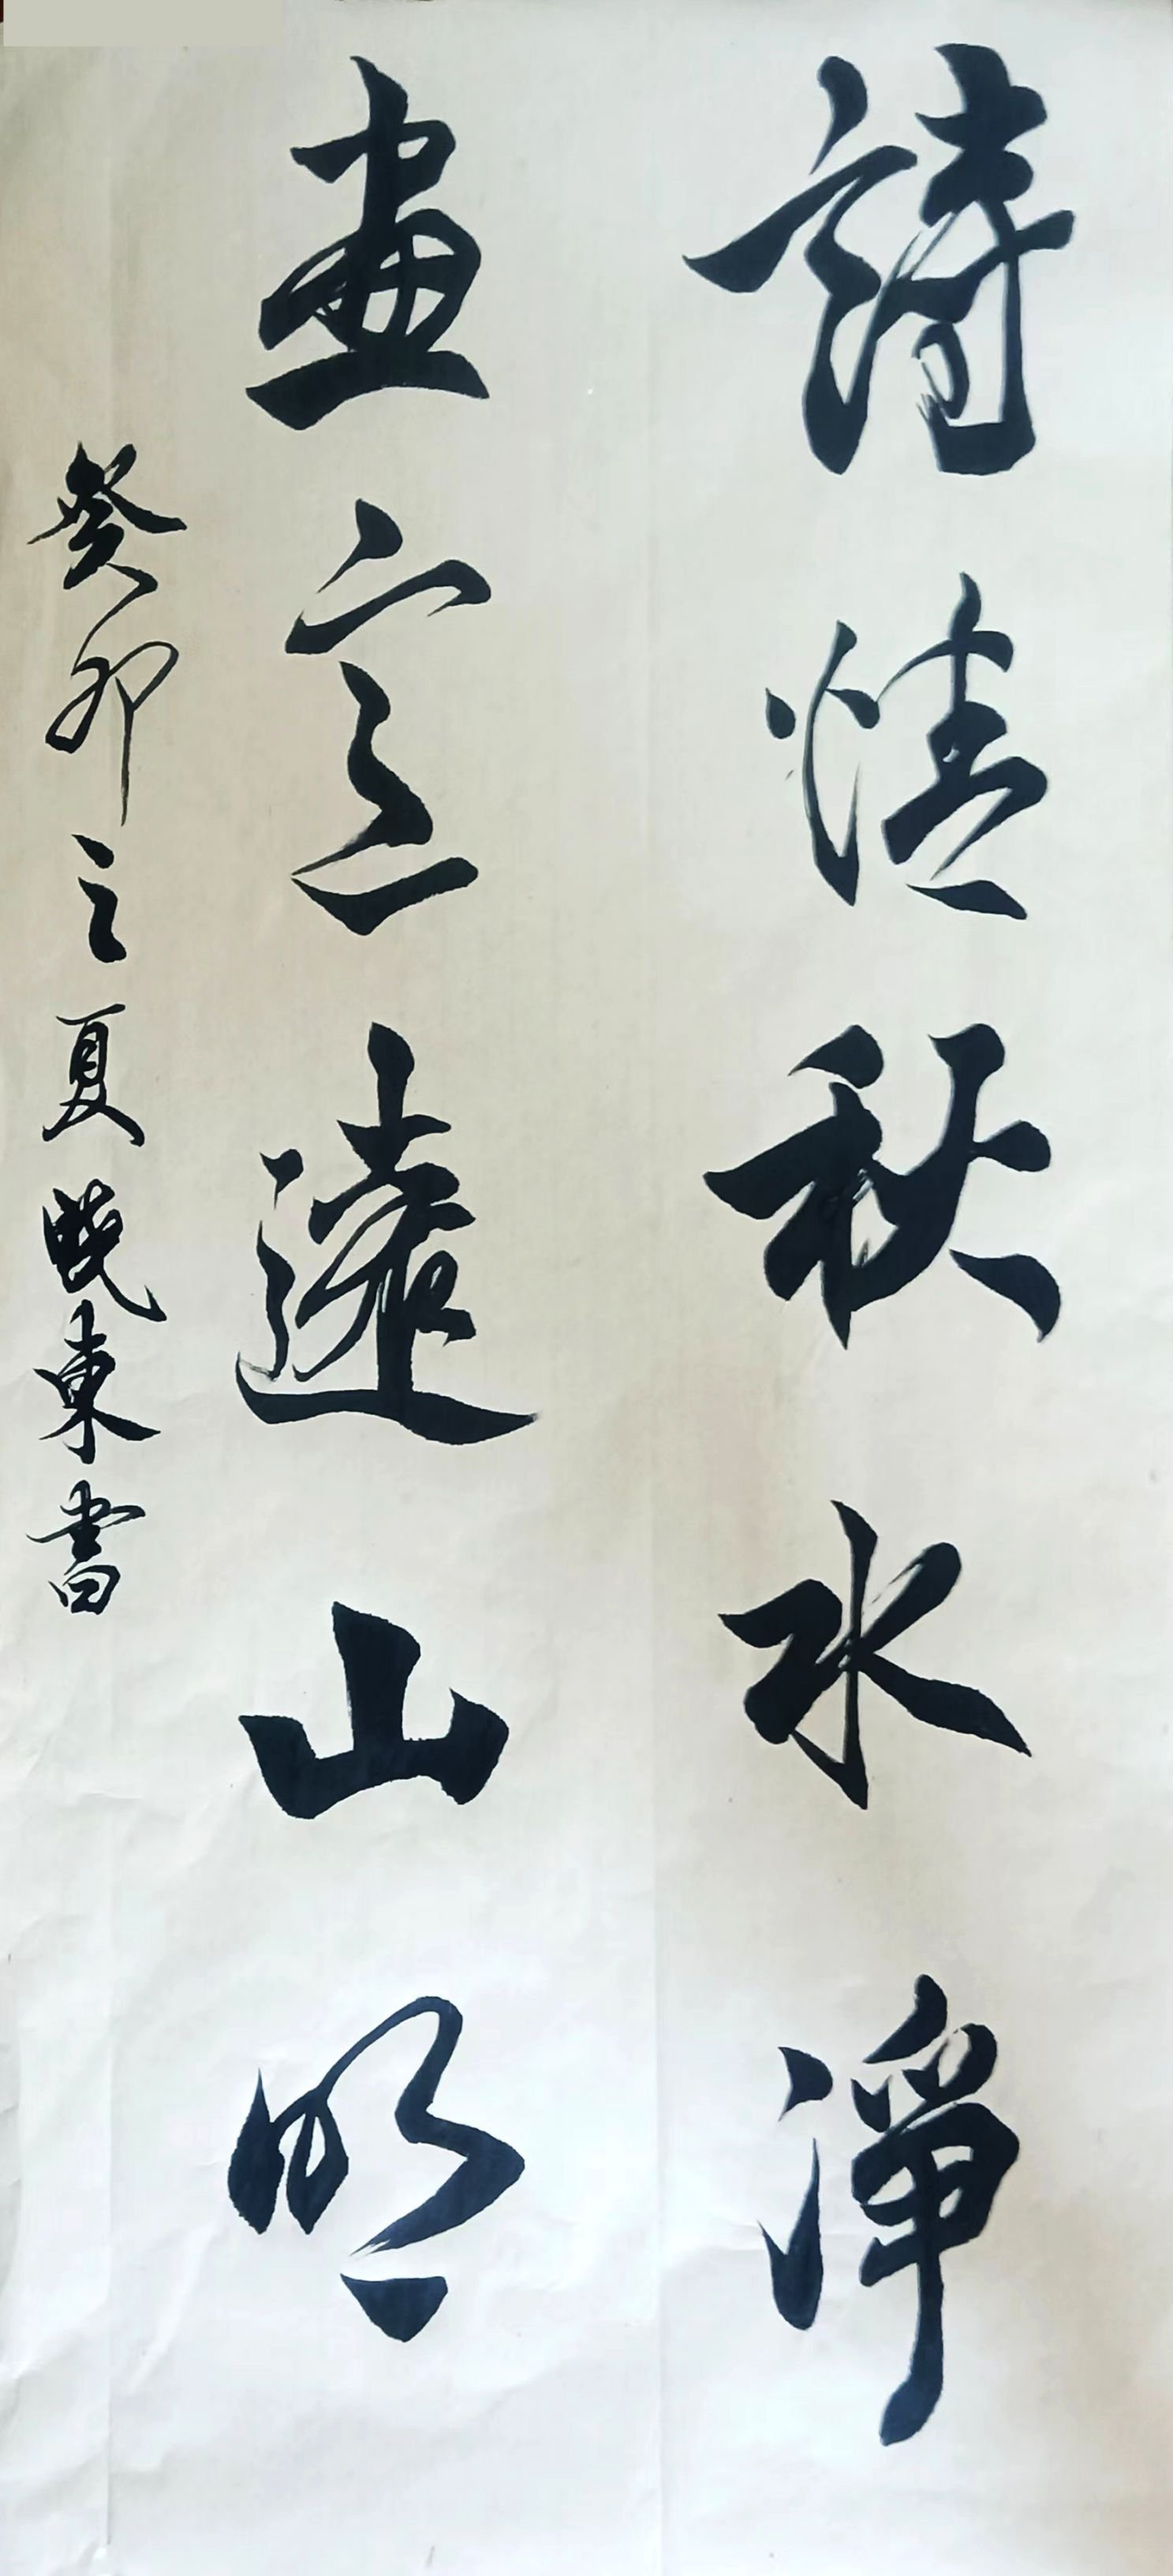 詩情秋水淨
畫意遠山明
癸卯之夏曉東書